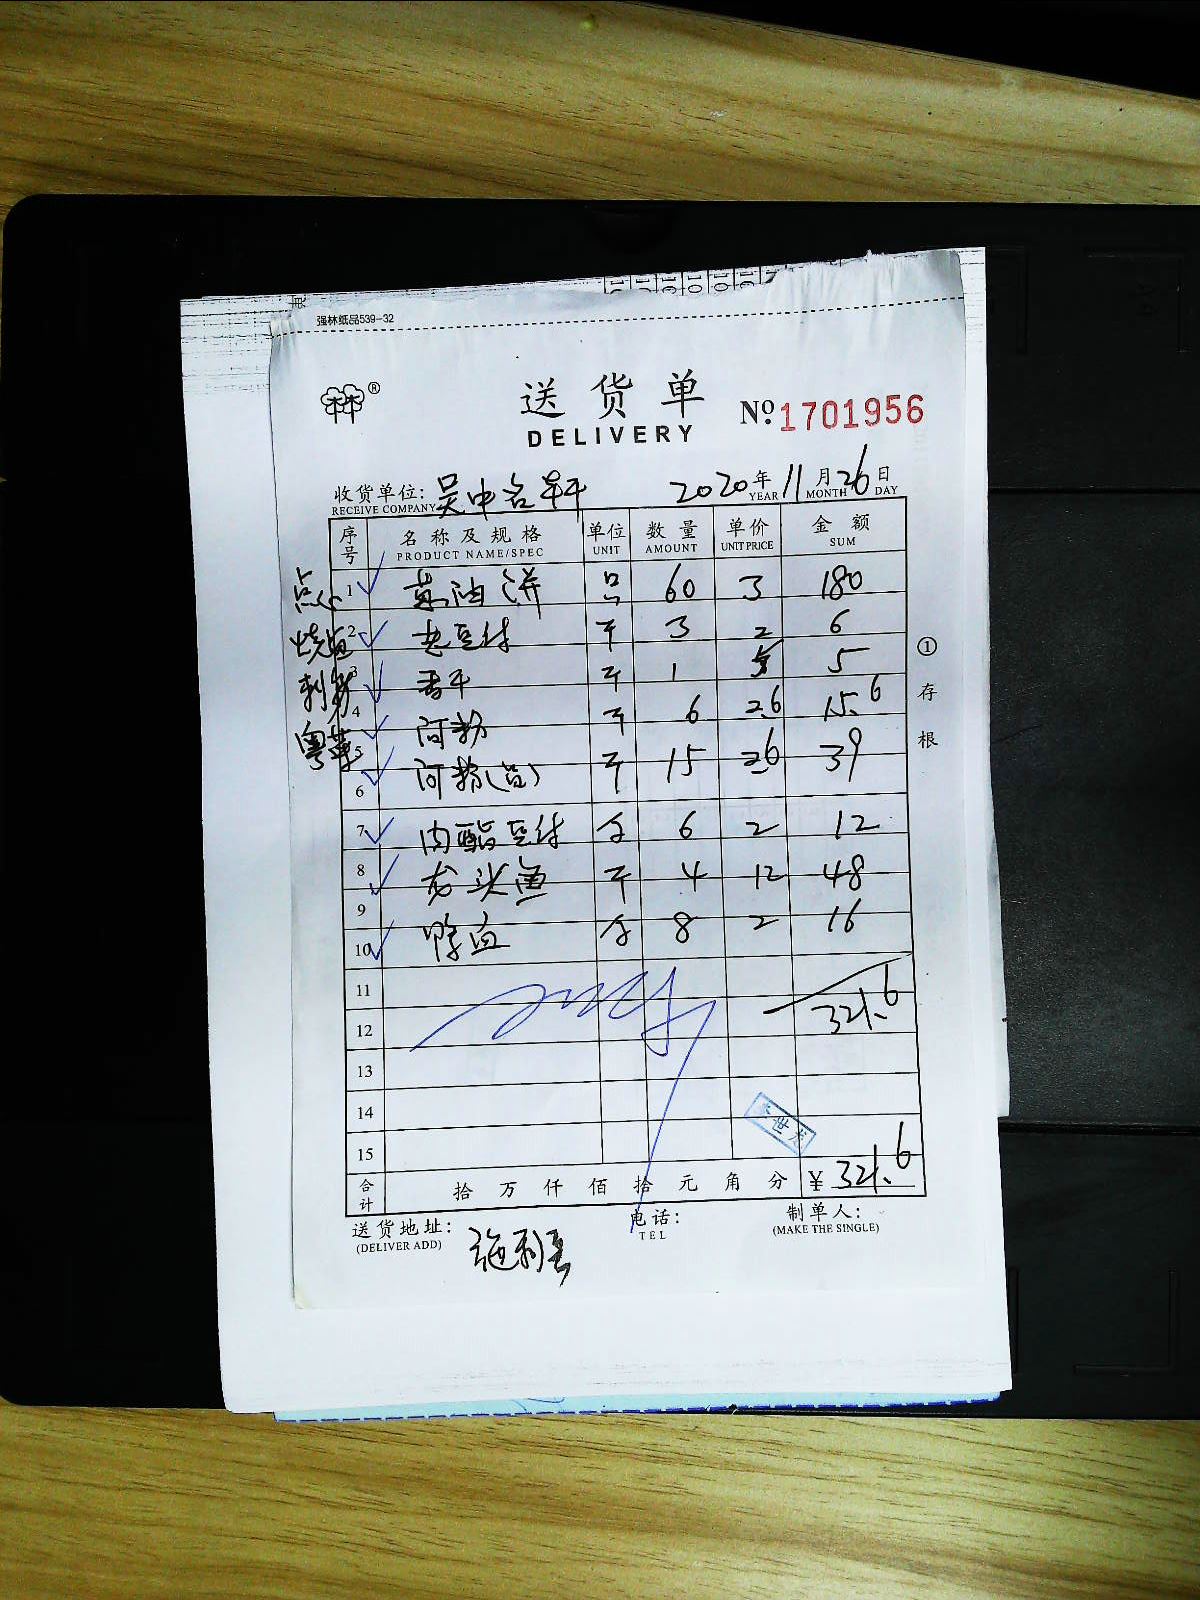 强林纸品539-32
送货单
DELIVERY
Nº 1701956
收货单位: 吴中名轩 2020年11月26日
RECEIVE COMPANY YEAR MONTH DAY
序号 名称及规格 单位 数量 单价 金额
PRODUCT NAME/SPEC UNIT AMOUNT UNIT PRICE SUM
点心 1 葱油饼 只 60 3 180
2 老豆付 斤 3 2 6
3 香干 斤 1 5 5
4 阿粉 斤 6 2.6 15.6
粤菜 5
6 阿粉 斤 15 2.6 39
7 内酯豆付 合 6 2 12
8 龙头鱼 斤 4 12 48
9
10 鸭血 合 8 2 16
11
12 321.6
13
14
15
合计 拾万仟佰拾元角分 ¥ 321.6
送货地址: 电话: 制单人:
(DELIVER ADD) TEL (MAKE THE SINGLE)
①存根